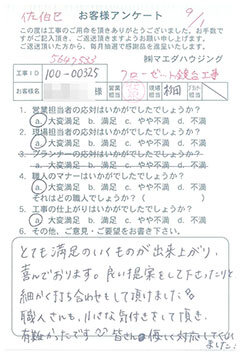 佐伯区
お客様アンケート
9/1
この度は工事のご用命を頂きありがとうございました。お手数で
すがご記入頂き、ご返送頂きますようお願い申し上げます。
ご送付頂いた方から、毎月抽選で感謝品を進呈いたします。
㈱マエダハウジング
工事ID 100-00325 クローゼット建具工事
お客様名 様 営業担当 現場担当 棚田 プラン担当
1. 営業担当者の応対はいかがでしたでしょうか?
a. 大変満足 b. 満足 c. やや不満 d. 不満
2. 現場担当者の応対はいかがでしたでしょうか?
a. 大変満足 b. 満足 c. やや不満 d. 不満
3. プランナーの応対はいかがでしたでしょうか?
a. 大変満足 b. 満足 c. やや不満 d. 不満
4. 職人のマナーはいかがでしたでしょうか?
a. 大変満足 b. 満足 c. やや不満 d. 不満
それはどの職人でしょうか?( )
5. 工事の仕上がりはいかがでしたでしょうか?
a. 大変満足 b. 満足 c. やや不満 d. 不満
6. その他、ご意見・ご要望をお書き下さい。
とても満足のいくものが出来上がり、
喜んでおります。良い提案をして下さったりと
細かく打ち合わせをして頂けました。
職人さんも、小さな気付きをして頂き、
有難かったです 皆さん優しく対応してくれ
ました!